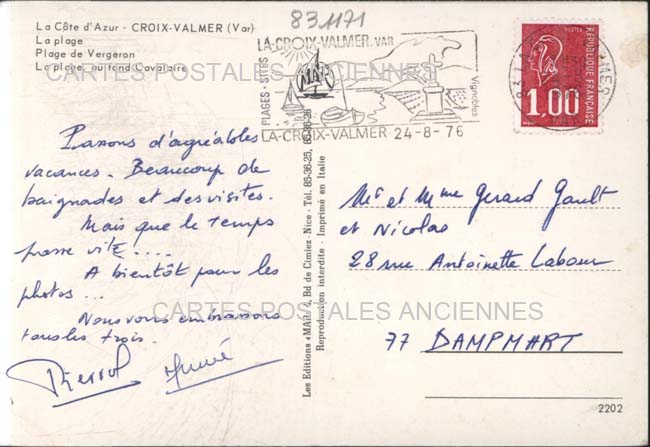 83 1171
La Côte d'Azur - CROIX-VALMER (Var)
La plage
Plage de Vergeron
La plage, au fond Cavalaire
LA-CROIX-VALMER, VAR
PLAGES-SITES
MAR
Vignobles
LA-CROIX-VALMER 24-8-76
REPUBLIQUE FRANÇAISE
POSTES
1,00
CARTES POSTALES ANCIENNES
Passons d'agréables
vacances. Beaucoup de
baignades et des visites.
Mais que le temps
passe vite....
A bientôt pour les
photos...
Nous vous embrassons
tous les trois.
Les Editions «MAR», Bd de Cimiez - Nice - Tél. 85-36-25, 85-36-26
Reproduction interdite - Imprimé en Italie
Mr et Mme Gerard Gault
et Nicolas
28 rue Antoinette Labour
77 DAMPMART
CARTES POSTALES ANCIENNES
2202